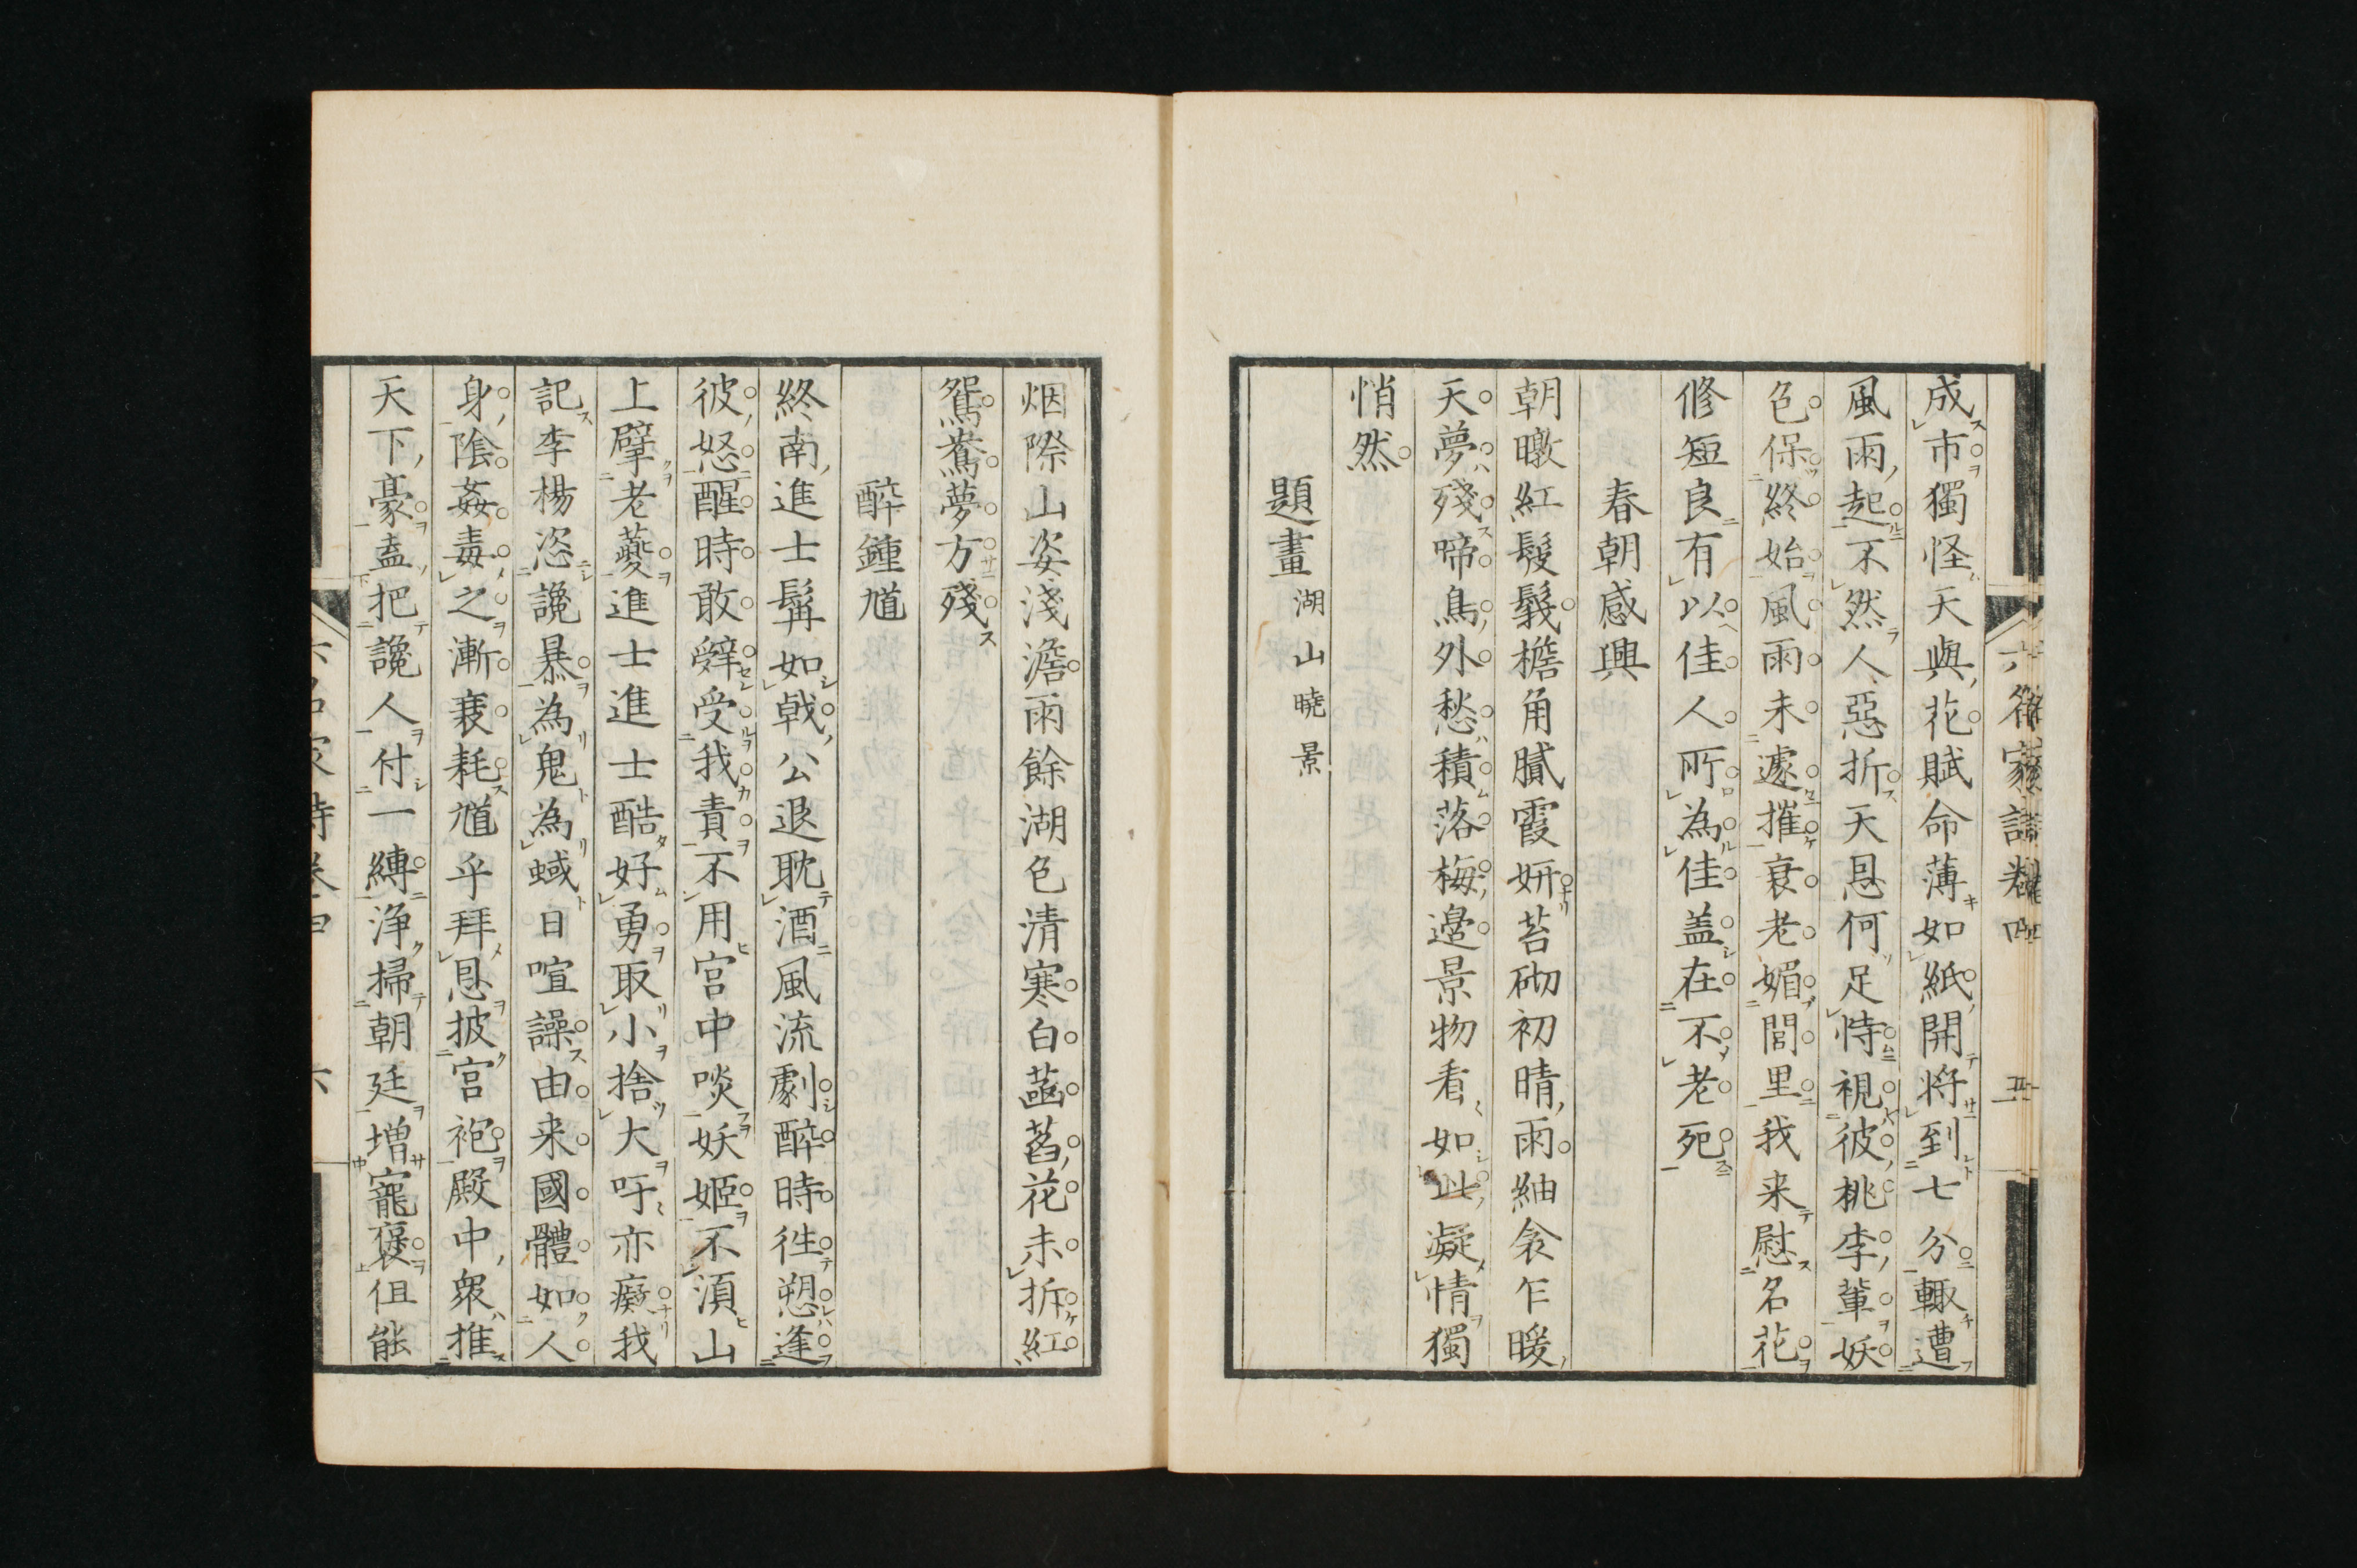 成市獨怪天與花賦命薄如紙開將到七分輙遭
風雨起不然人惡折天恩何足恃視彼桃李輩妖
色保終始風雨未遽摧衰老媚閭里我来慰名花
修短良有以佳人所為佳盖在不老死
春朝感興
朝暾紅髲鬀檐角膩霞妍苔砌初晴雨紬衾乍暖
天夢殘啼鳥外愁積落梅邊景物看如此凝情獨
悄然
題畫湖山曉景
烟際山姿淺澹雨餘湖色清寒白菡萏花未拆紅
鴛鴦夢方殘
醉鍾馗
終南進士髯如戟公退耽酒風流劇醉時徃愬逢
彼怒醒時敢辤受我責不用宮中啖妖姬不湏山
上擘老夔進士進士酷好勇取小捨大吁亦癡我
記李楊恣讒暴為鬼為蜮日喧譟由来國體如人
身陰姦毒之漸衰耗馗乎拜恩披宮袍殿中衆推
天下豪盍把讒人付一縛淨掃朝廷增寵褒徂能
六名家詩卷四 六